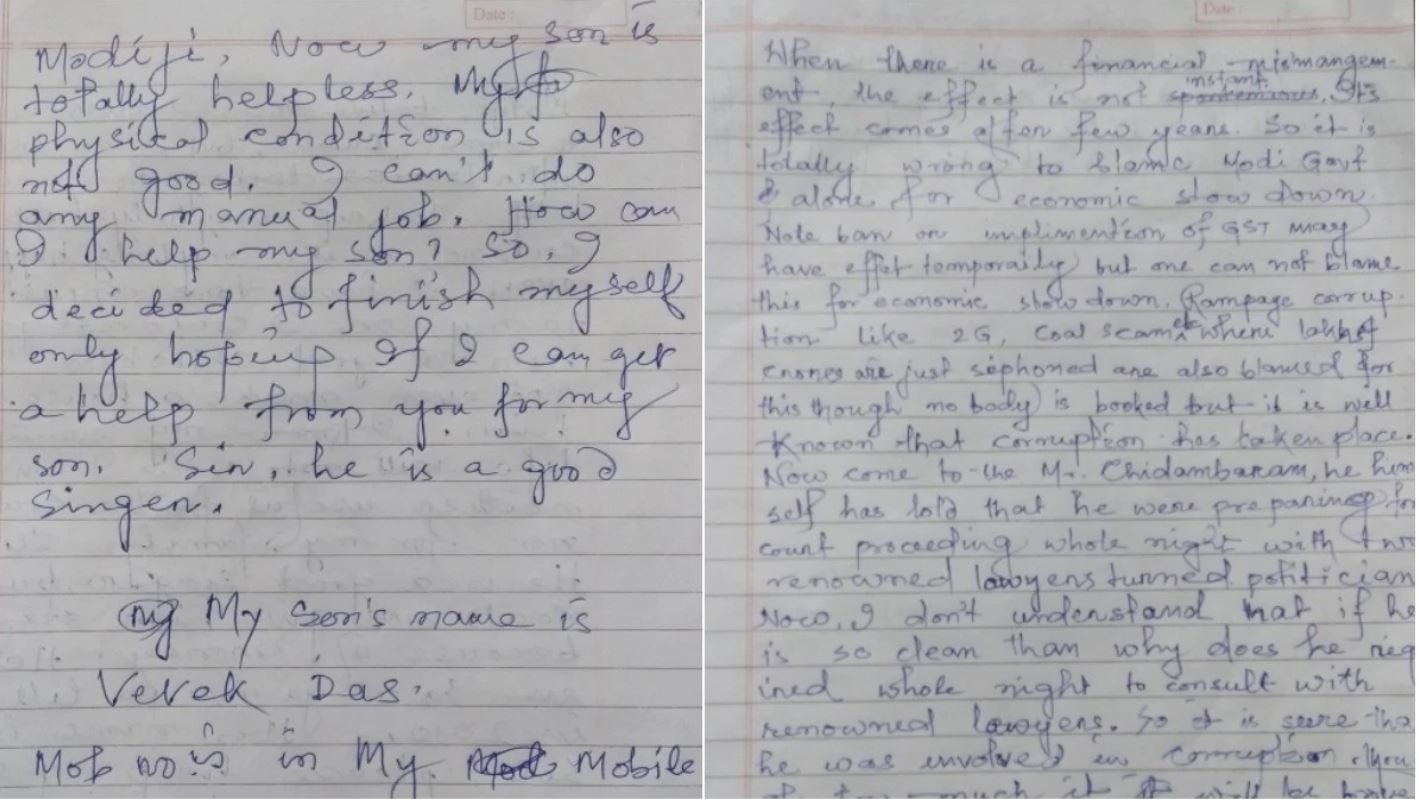 Date :
Modiji, Now my son is
totally helpless. My
physical condition is also
not good. I can't do
any manual job. How can
I help my son? So, I
decided to finish myself
only hoping if I can get
a help from you for my
son. Sir, he is a good
Singer.
My Son's name is
Vevek Das.
Mob no is in My Mobile
Date :
When there is a financial mismangem-
ent, the effect is not instant. Its
effect comes after few years. So it is
totally wrong to blame Modi Govt
alone for economic slow down.
Note ban or implimention of GST may
have effet temporaily but one can not blame
this for economic slow down. Rampage corrup-
tion like 2G, coal scam etc where lakhs of
crores are just sephoned are also blamed for
this though no body is booked but it is well
known that corruption has taken place.
Now come to the Mr. Chidambaram, he him
self has told that he were preparing for
court proceeding whole night with two
renowned lawyers turned politician
Now, I don't understand that if he
is so clean than why does he req
ired whole night to consult with
renowned lawyers. So it is sure tha
he was involved in corruption
much it will be